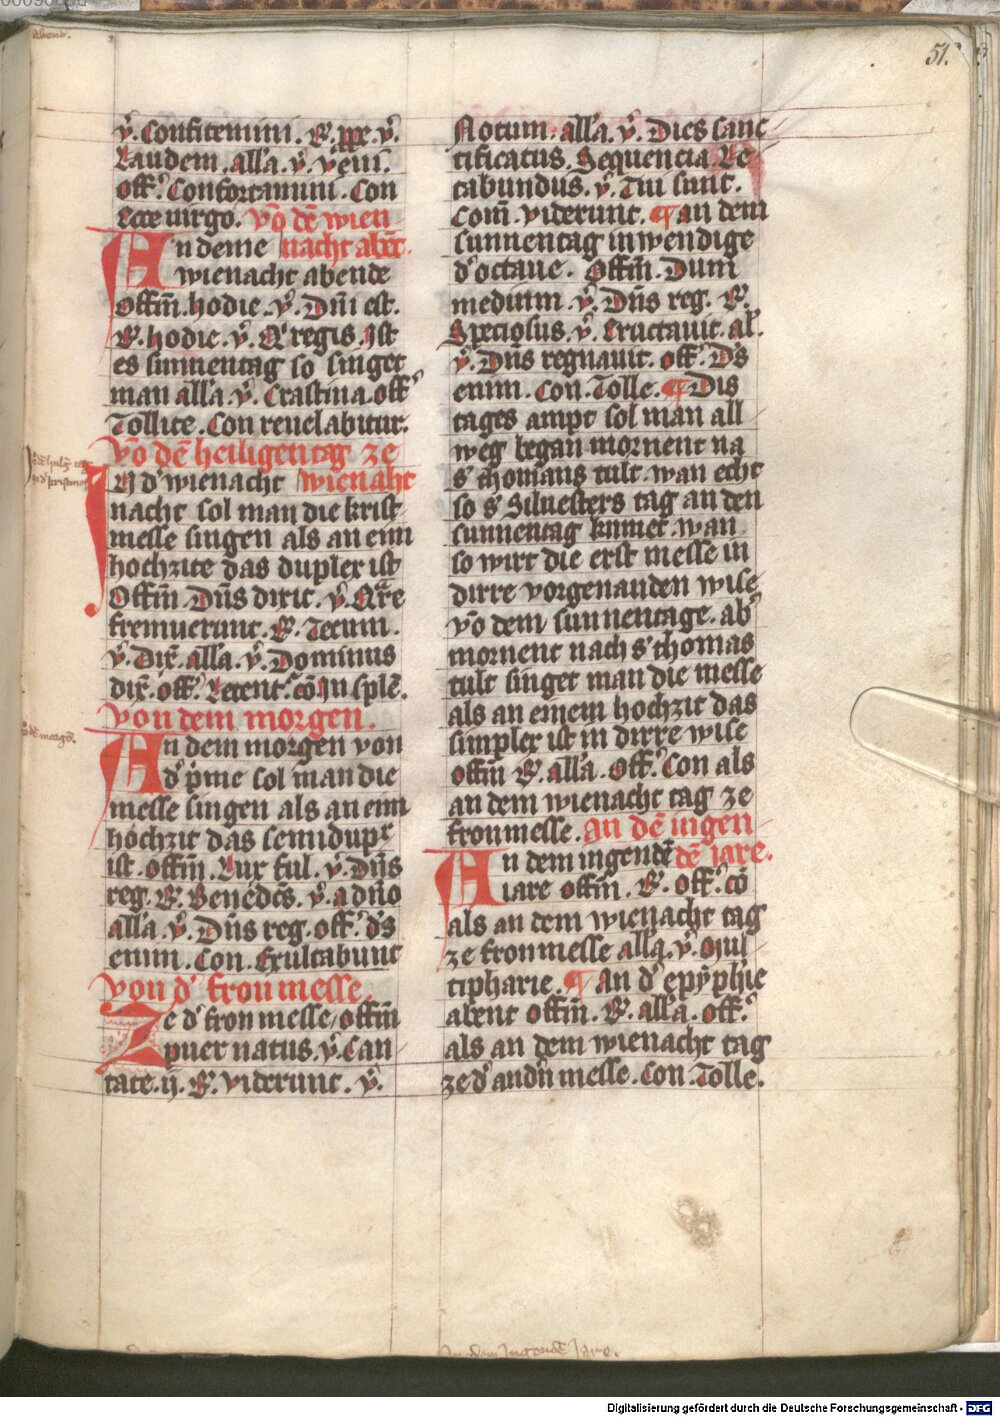 51.
ꝟ. Confitemini. R. ꝓpe. ꝟ.
Laudem. all'a. ꝟ. veni.
off. Confortamini. Con
Ecce uirgo. võ dē wien
An deme nacht abēt.
wienacht abende
Offm̄. hodie. ꝟ. Dn̄i est.
R. hodie. ꝟ. Q regis. Ist
es sunnentag so singet
man all'a. ꝟ. Crastina. off
Tollite. Con reuelabitur.
võ dē heiligen tag ze
In d' wienacht wienaht
nacht sol man die krist
messe singen als an eim
hochzite das duplex ist
Offm̄. Dn̄s dixit. ꝟ. Qr̄e
fremuerunt. R. Tecum.
ꝟ. Dix̄. all'a. ꝟ. Dominus
dix̄. off. Letent'. cō In splē.
von dem morgen.
An dem morgen von
d' p'me sol man die
messe singen als an eim
hochzit das semidupx
ist. offm̄. Lux ful. ꝟ. Dn̄s
reg. R. Benedcs̄. ꝟ. a dn̄o
all'a. ꝟ. Dn̄s reg. off. d's
enim. Con. Exultabunt
von d' fron messe.
Ze d' fron messe offm̄
puer natus. ꝟ. Can
tate. ij. R. viderunt. ꝟ.
Notum. all'a. ꝟ. Dies sanc
tificatus. Sequencia. Le
tabundus. ꝟ. Tui sunt.
Com̄. viderunt. ¶ an dem
sunnentag inwendige
d' octaue. Offm̄. Dum
medium. ꝟ. Dn̄s reg. R.
Speciosus. ꝟ. Eructauit. al'.
ꝟ. Dn̄s regnauit. off. D's
enim. Con. Tolle. ¶ Dis
tages ampt sol man all
weg began mornent na
s' thomans tult. wan echt
so s' Siluesters tag an den
sunnentag kumet. wan
so wirt die erst messe in
dirre vorgenanden wise
võ dem sunnentage. ab'
mornent nach s' thomas
tult singet man die messe
als an einem hochzit das
simplex ist in dirre wise
offm̄ R. all'a. off. Con als
an dem wienacht tag ze
fronmesse. an dē ingen
An dem ingendē dē iare.
iare offm̄. R. off. cō
als an dem wienacht tag
ze fronmesse all'a. ꝟ. Mul
tipharie. ¶ An d' epyphie
abent offm̄. R. all'a. off.
als an dem wienacht tag
ze d' andn̄ messe. Con. Tolle.
Jn dem Jngendē Jare.
Digitalisierung gefördert durch die Deutsche Forschungsgemeinschaft - DFG